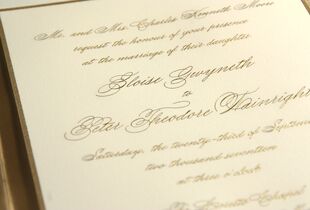 Mr. and Mrs. Charles Kenneth Moore
request the honour of your presence
at the marriage of their daughter
Eloise Gwyneth
to
Peter Theodore Wainright
Saturday, the twenty-third of September
two thousand seventeen
at three o'clock
Chapel